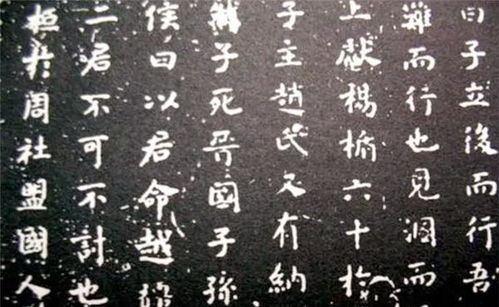 曰子立後而行吾
難而行也見溷而
上獻楊楯六十於
子主趙氏又有納
然子死晉國子孫
侯曰以君命越疆
二君不可不討也
桓於周社盟國人